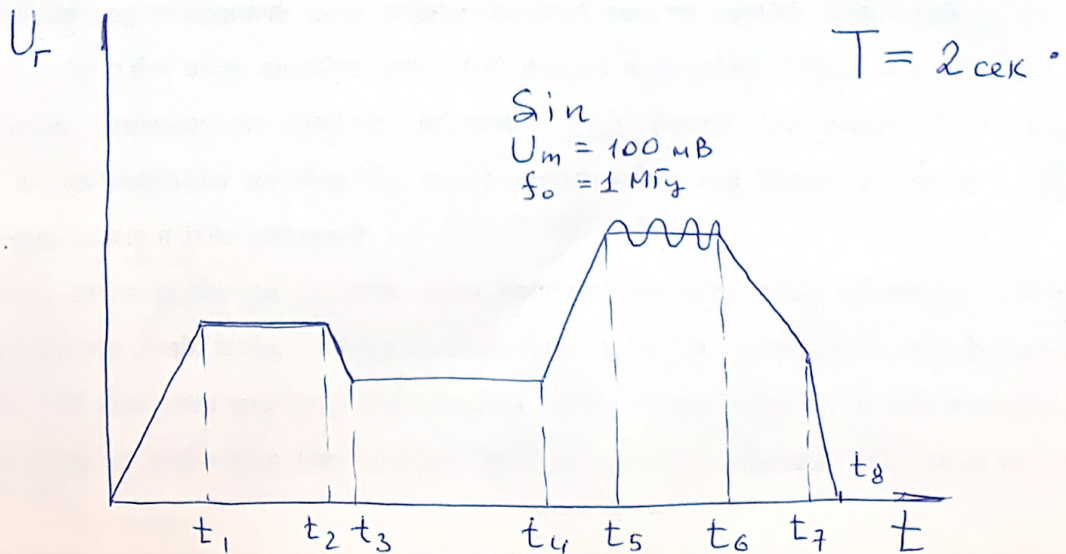 Uг
T = 2 сек.
Sin
Um = 100 мВ
f₀ = 1 МГц
t₁ t₂ t₃ t₄ t₅ t₆ t₇ t₈ t